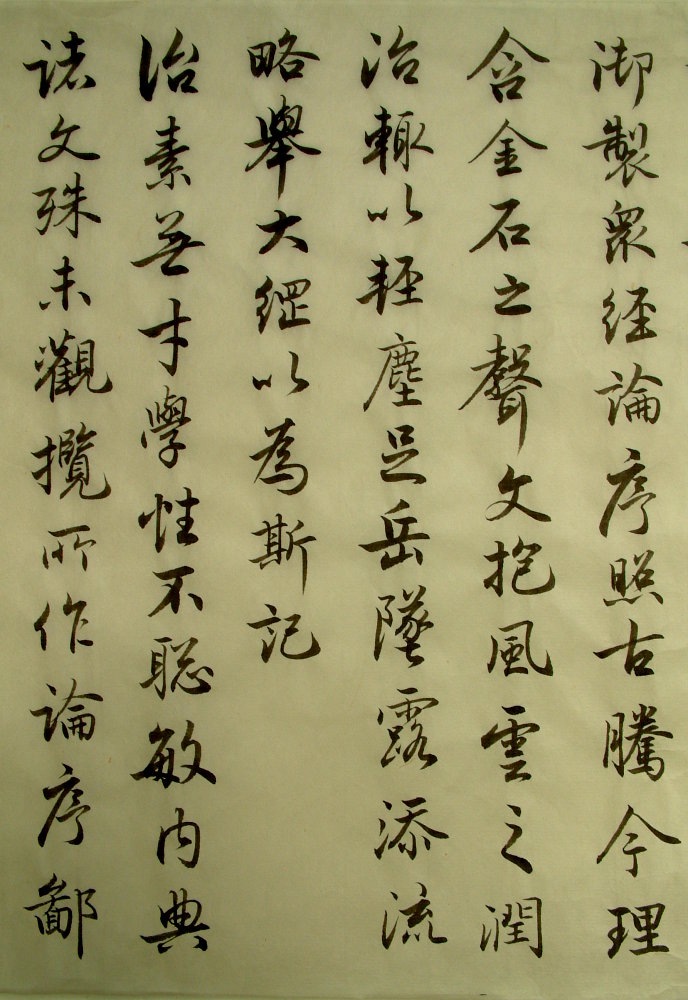 御製眾經論序照古騰今理
含金石之聲文抱風雲之潤
治輒以輕塵足岳墜露添流
略舉大綱以為斯記
治素無才學性不聰敏內典
諸文殊未觀攬所作論序鄙